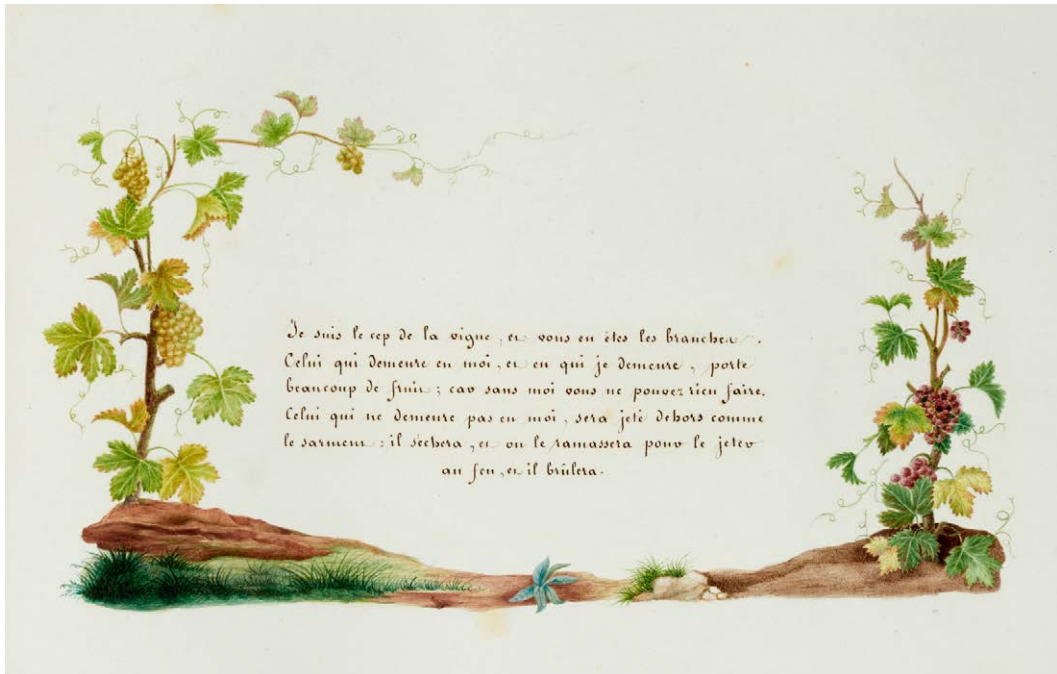 Je suis le cep de la vigne, et vous en êtes les branches.
Celui qui demeure en moi, et en qui je demeure, porte
beaucoup de fruit; car sans moi vous ne pouvez rien faire.
Celui qui ne demeure pas en moi, sera jeté dehors comme
le sarment: il séchera, et on le ramassera pour le jeter
au feu, et il brûlera.